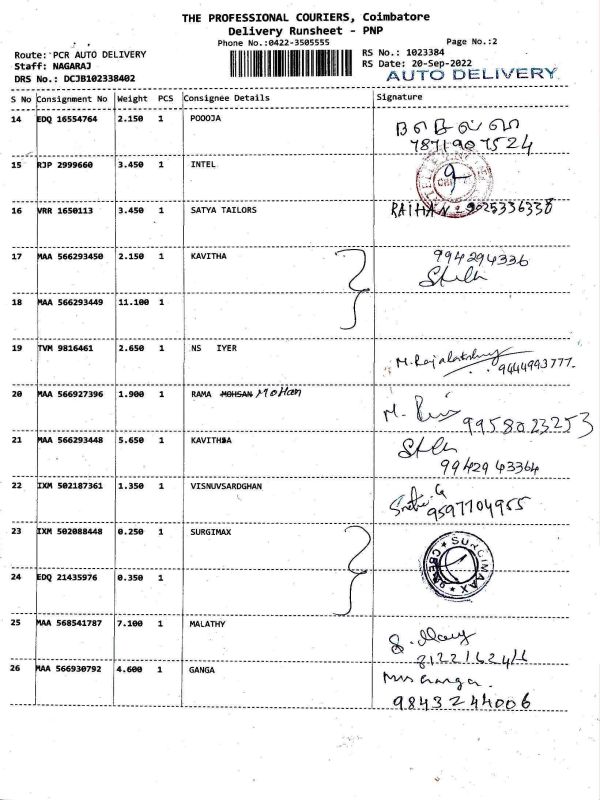 THE PROFESSIONAL COURIERS, Coimbatore
Delivery Runsheet - PNP
Phone No.:0422-3505555 Page No.:2
Route: PCR AUTO DELIVERY RS No.: 1023384
Staff: NAGARAJ RS Date: 20-Sep-2022
DRS No.: DCJB102338402 AUTO DELIVERY
S No Consignment No Weight PCS Consignee Details Signature
14 EDQ 16554764 2.150 1 POOOJA
7871907524
15 RJP 2999660 3.450 1 INTEL
16 VRR 1650113 3.450 1 SATYA TAILORS RAIHAN : 9025336338
17 MAA 566293450 2.150 1 KAVITHA 994294336
18 MAA 566293449 11.100 1
19 TVM 9816461 2.650 1 NS IYER M.Rajalakshmy
9444993777.
20 MAA 566927396 1.900 1 RAMA MOHSAN Mohan M.
9958023253
21 MAA 566293448 5.650 1 KAVITHBA
9942943364
22 IXM 502187361 1.350 1 VISNUVSARDGHAN
9597704955
23 IXM 502088448 0.250 1 SURGIMAX SURGIMAAX
24 EDQ 21435976 0.350 1
25 MAA 568541787 7.100 1 MALATHY
26 MAA 566930792 4.600 1 GANGA
9843244006